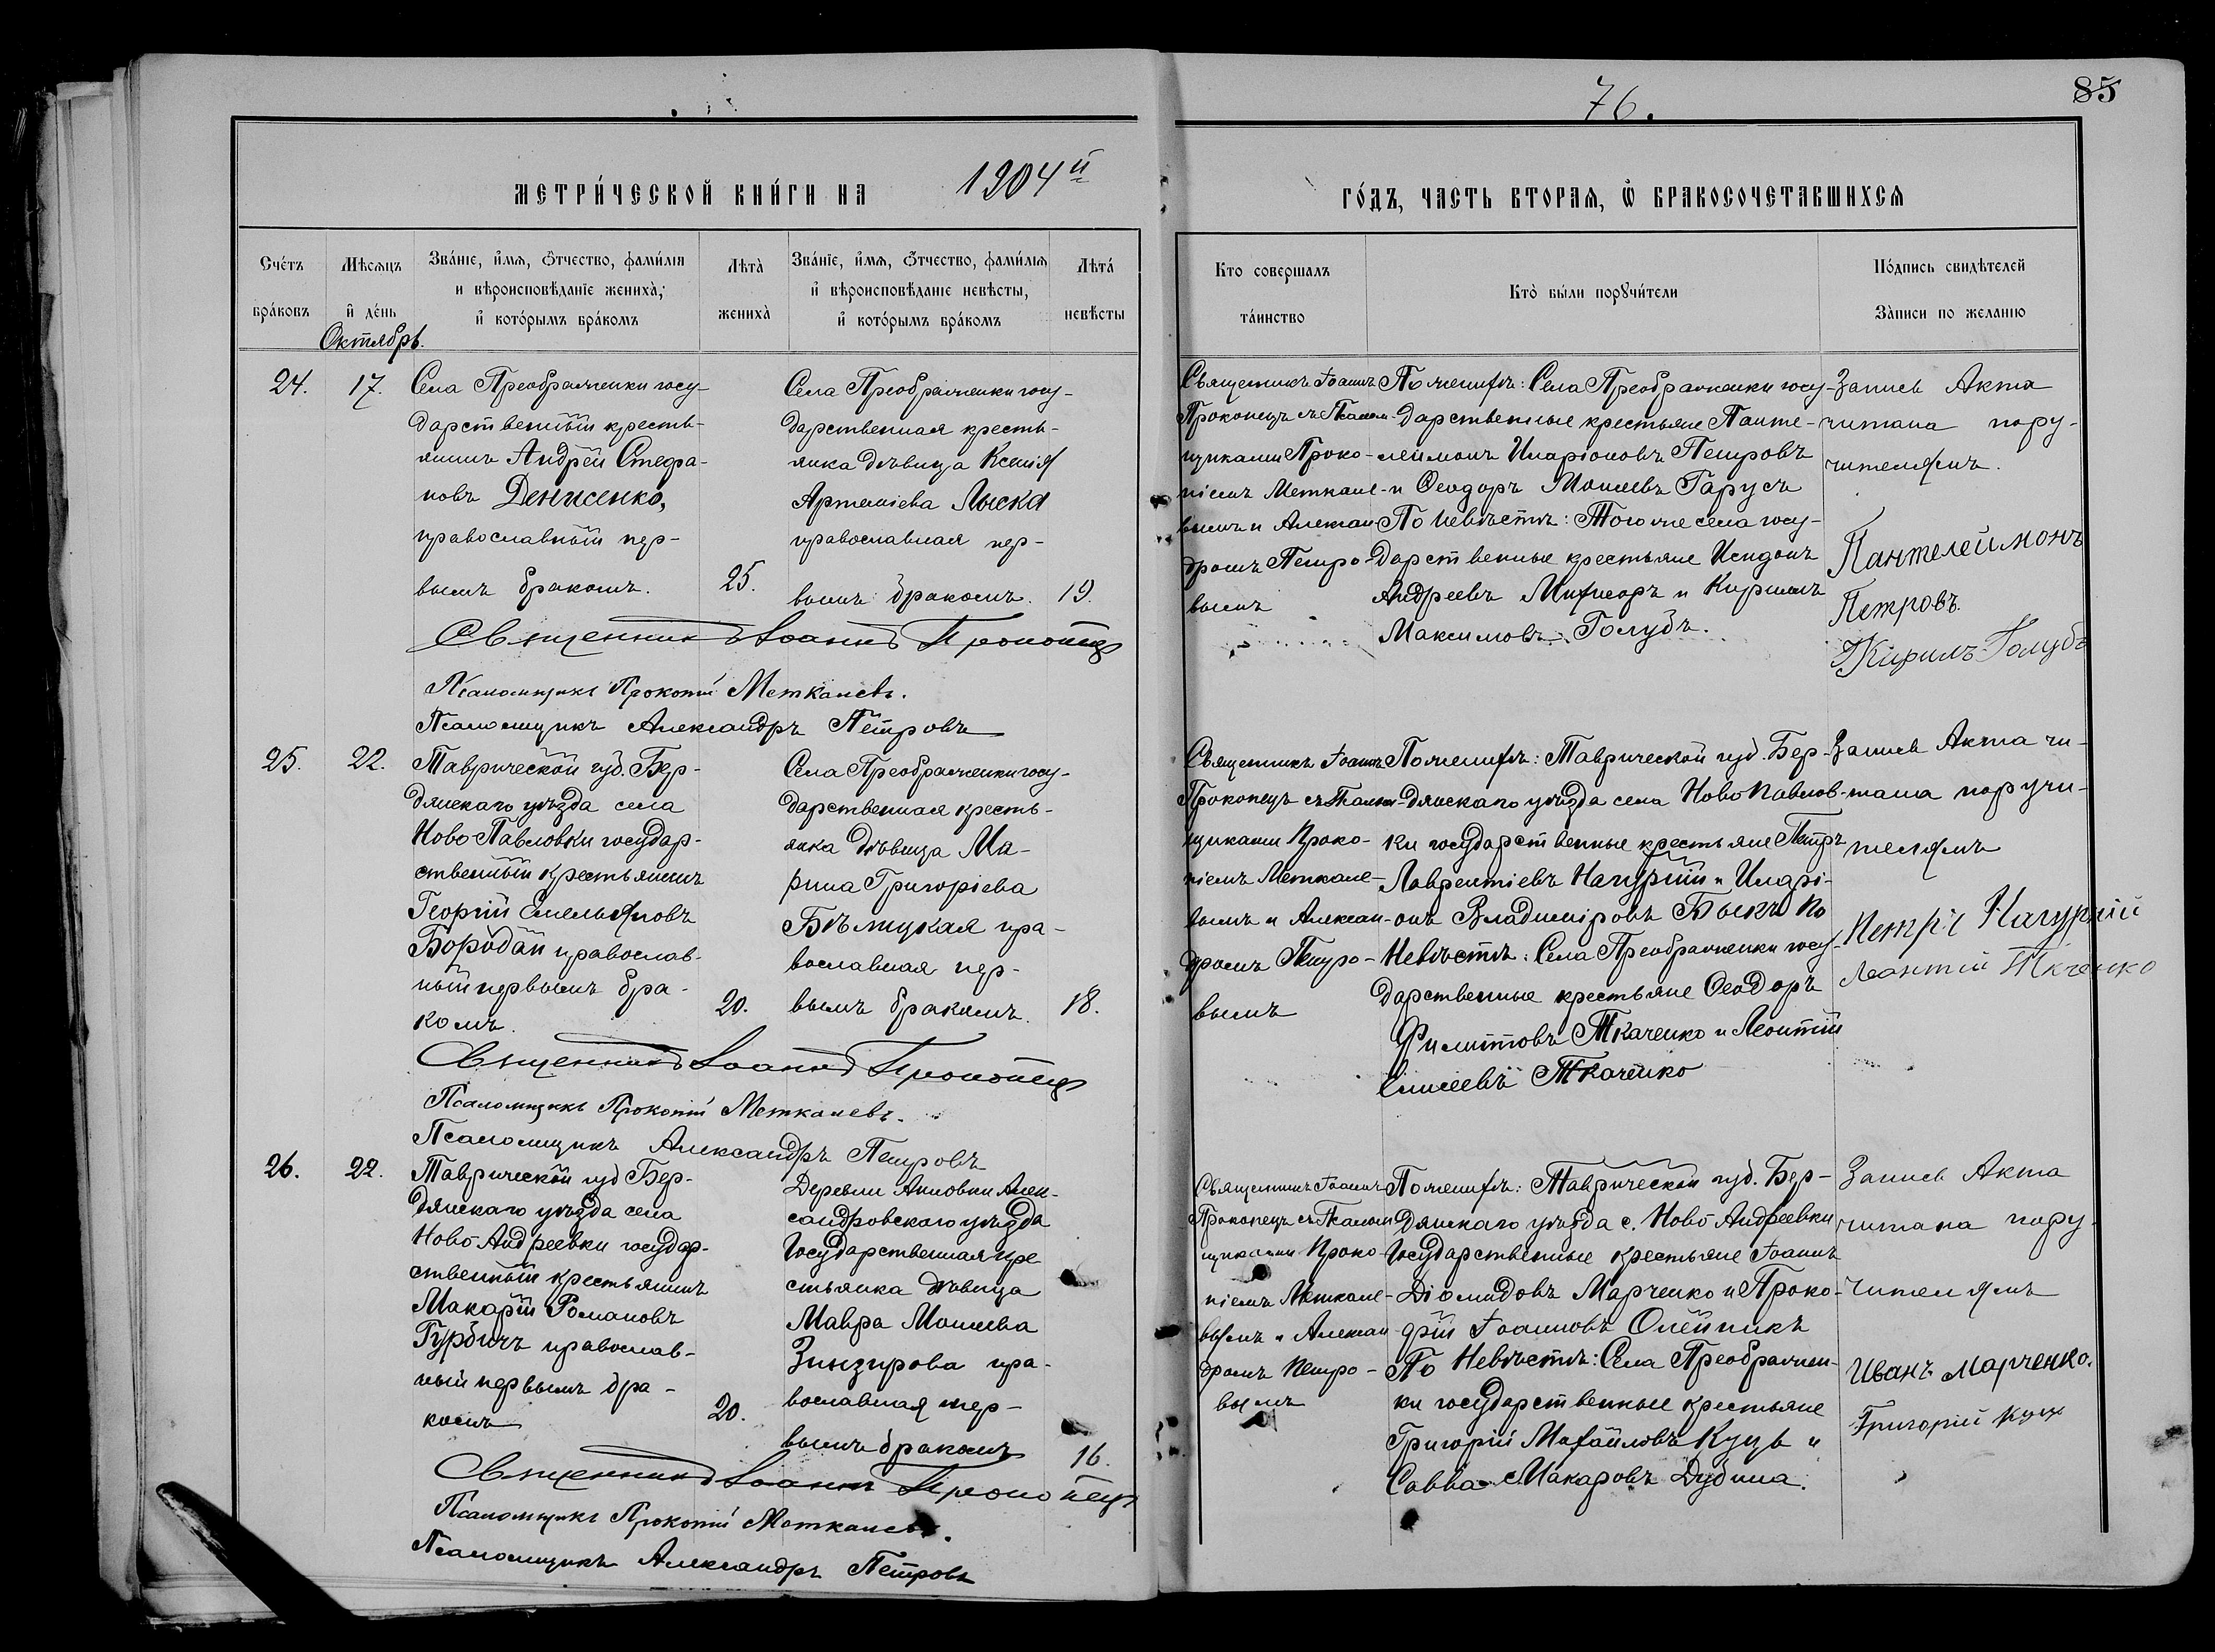 76.
85
МЕТРИ́ЧЕСКОЙ КНИ́ГИ НА 1904 й
ГО́ДЪ, ЧАСТЬ ВТОРАѦ, Ѽ БРАКОСОЧЕТАВШИХСѦ
Сче́тъ бра́ковъ
Мѣсѧцъ и де́нь
Зва́нїе, и́мѧ, ѻтчество, фами́лїѧ и вѣроисповѣ́данїе жениха̀; и кото́рымъ бра́комъ
Лѣта̀ жениха̀
Зва́нїе, и́мѧ, ѻтчество, фами́лїѧ и вѣроисповѣ́данїе невѣ́сты, и кото́рымъ бра́комъ
Лѣта́ невѣ́сты
Кто совершалъ та́инство
Кто̀ бы́ли порꙋчи́тели
По́дпись свидѣ́телей За́писи по желанїю
Октябрь.
24.
17.
Села Преображенки госу-
дарственный кресть-
янинъ Андрей Стефа-
новъ Денисенко,
православный пер-
вымъ бракомъ.
25.
Села Преображенки госу-
дарственная кресть-
янка дѣвица Ксенія
Артеміева Лыска
православная пер-
вымъ бракомъ.
19.
Священникъ Іоаннъ
Прокопецъ съ Псалом-
щиками Проко-
піемъ Меткале-
вымъ и Алексан-
дромъ Петро-
вымъ
По женихѣ: Села Преображенки госу-
дарственные крестьяне Панте-
леймонъ Иларіоновъ Петровъ
и Ѳеодоръ Моисеевъ Гарусъ
По невѣстѣ: Того же села госу-
дарственные крестьяне
Андреевъ и Кириллъ
Максимовъ Голубъ.
Запись Акта
читана пору-
чителямъ.
Пантелеймонъ
Петровъ.
Кирилъ Голубъ
Священникъ Іоаннъ Прокопецъ
Псаломщикъ Прокопій Меткалевъ.
Псаломщикъ Александръ Петровъ
25.
22.
Таврической губ. Бер-
дянскаго уѣзда села
Ново-Павловки государ-
ственный крестьянинъ
Георгій Емельяновъ
Бородай православ-
ный первымъ бра-
комъ.
20.
Села Преображенки госу-
дарственная кресть-
янка дѣвица Ма-
рина Григоріева
Бѣлицкая пра-
вославная пер-
вымъ бракомъ.
18.
Священникъ Іоаннъ
Прокопецъ съ Псалом-
щиками Проко-
піемъ Меткале-
вымъ и Алексан-
дромъ Петро-
вымъ
По женихѣ: Таврической губ. Бер-
дянскаго уѣзда села Ново Павлов-
ки государственные крестьяне Петръ
Лаврентіевъ Нагурній и Илари-
онъ Владиміровъ Быкъ По
Невѣстѣ: Села Преображенки госу-
дарственные крестьяне Ѳеодоръ
Филипповъ Ткаченко и Леонтій
Елисеевъ Ткаченко
Запись Акта чи-
тана поручи-
телямъ
Петръ Нагурній
Леонтій Ткченко
Священникъ Іоаннъ Прокопецъ
Псаломщикъ Прокопій Меткалевъ.
Псаломщикъ Александръ Петровъ
26.
22.
Таврической губ Бер-
дянскаго уѣзда села
Ново Андреевки государ-
ственный крестьянинъ
Макарій Романовъ
Гурбичъ православ-
ный первымъ бра-
комъ
20.
Деревни Алек-
сандровского уѣзда
Государственная кре
стьянка дѣвица
Мавра Моисеева
Зинзирова пра-
вославная пер-
вымъ бракомъ
16.
Священникъ Іоаннъ
Прокопецъ съ Псалом
щиками Проко
піемъ Меткале-
вымъ и Алексан
дромъ Петро-
вымъ
По женихѣ: Таврической губ. Бер-
дянскаго уѣзда с. Ново Андреевки
Государственные крестьяне Іоаннъ
Діомидовъ Марченко и Проко-
Іоанновъ Олейникъ
По Невѣстѣ: Села Преображен-
ки государственные крестьяне
Григорій Михайловъ Куць и
Савва Макаровъ Дубина.
Запись Акта
читана пору-
чителямъ
Иванъ Марченко.
Григорій Куц
Священникъ Іоаннъ Прокопецъ
Псаломщикъ Прокопій Меткалевъ.
Псаломщикъ Александръ Петровъ